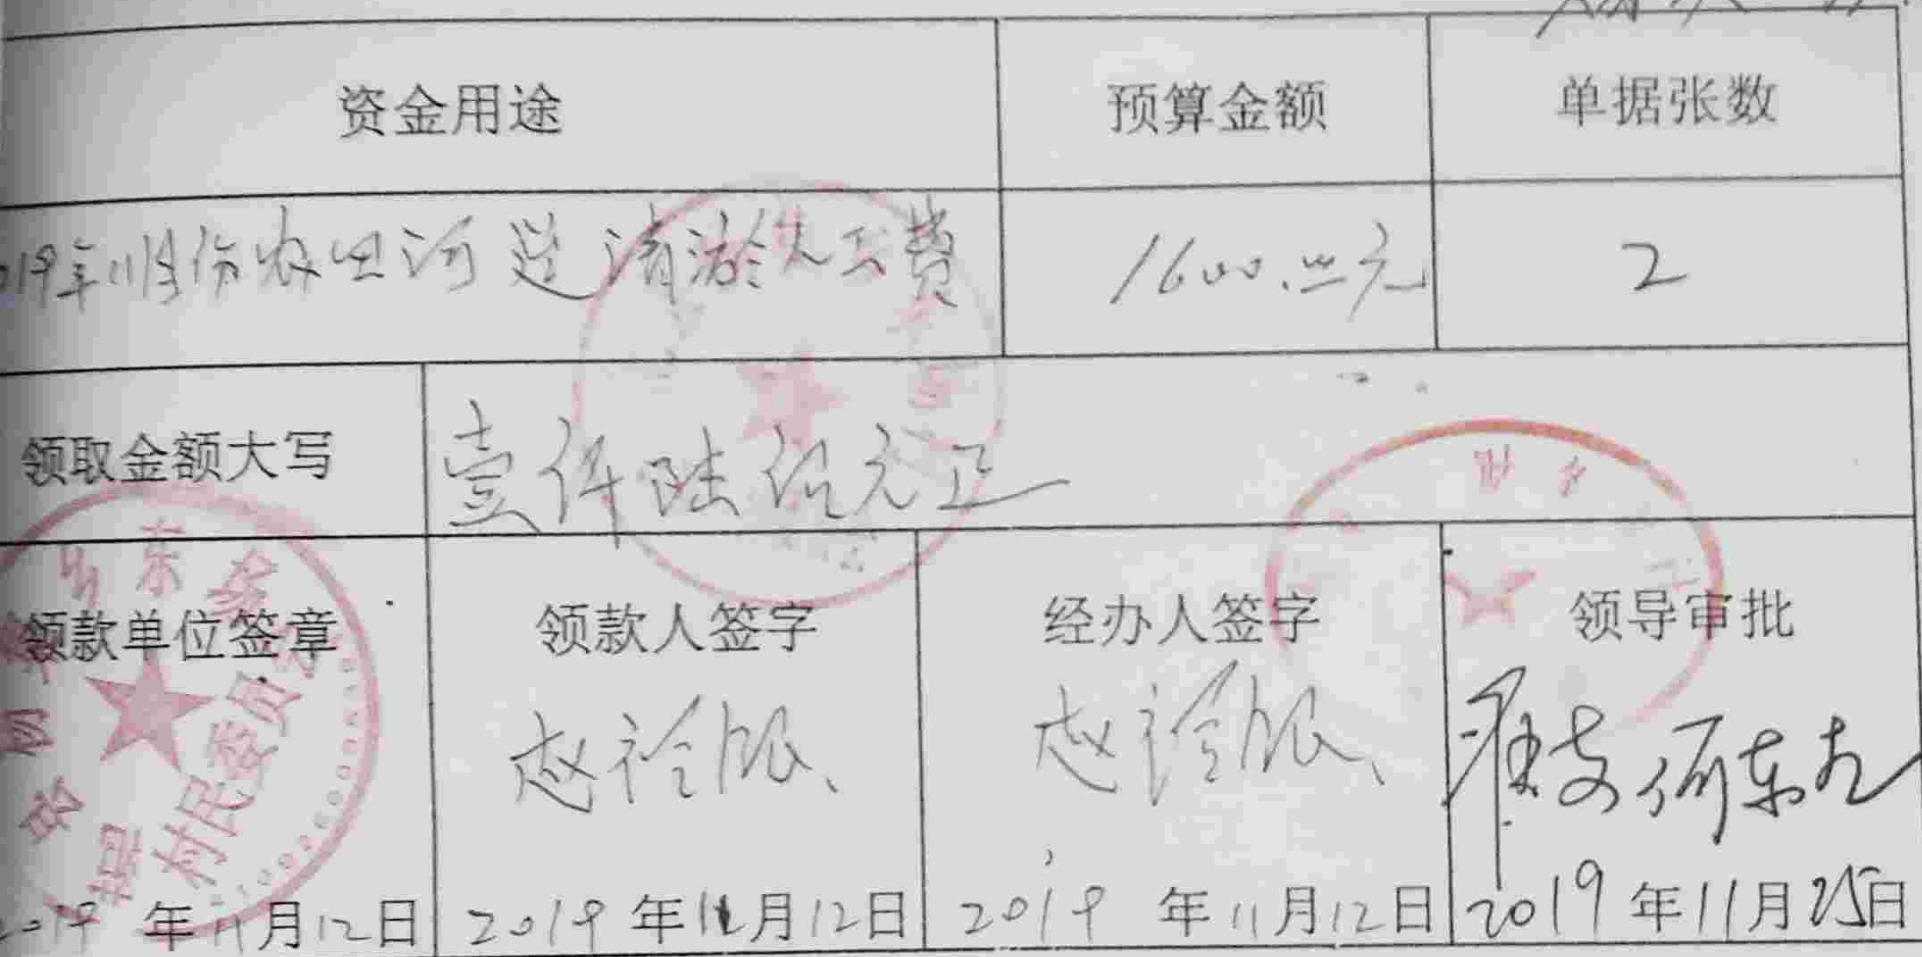 资金用途 预算金额 单据张数
019年11月份农田河道清淤人工费 1600.00元 2
领取金额大写 壹仟陆佰元正
领款单位签章 领款人签字 经办人签字 领导审批
村民委员会
2019年11月12日 2019年11月12日 2019年11月12日 2019年11月25日